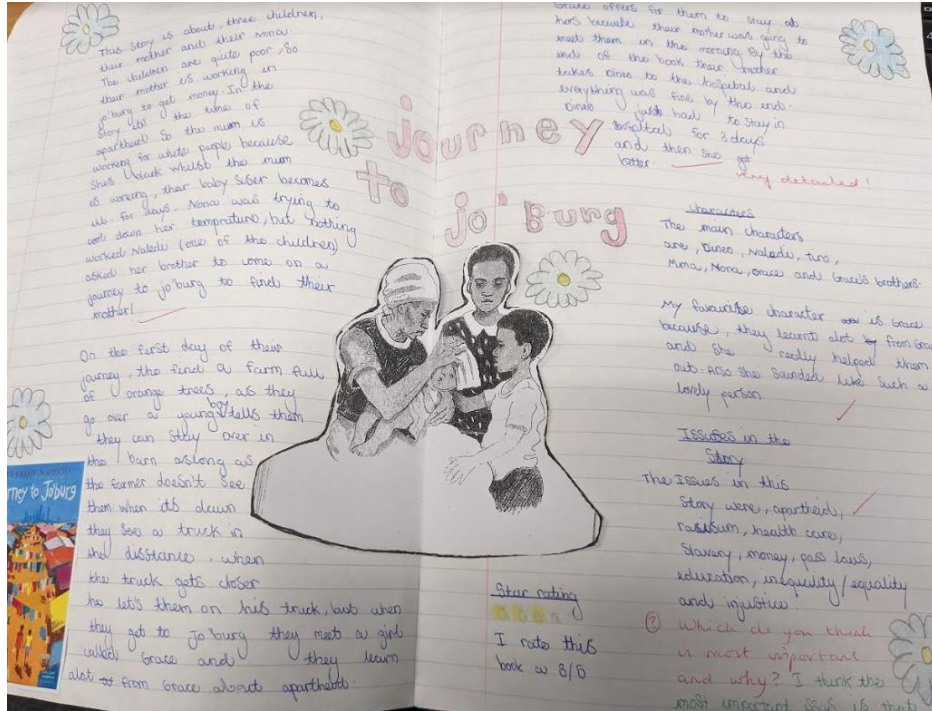 This story is about, three children,
their mother and their Nona.
The children are quite poor, so
their mother is working in
jo'burg to get money. In the
story its the time of
apartheid so the mum is
working for white people because
shes black whilst the mum
is working, their baby sister becomes
ill. For days, Nona was trying to
cool down her temprature, but nothing
worked Naledi (one of the children)
asked her brother to come on a
journey to jo'burg to find their
mother!
On the first day of their
journey, the find a farm full
of orange trees, as they
go over a young boy tells them
they can stay over in
the barn aslong as
the farmer doesn't see
them. When it's dawn
they see a truck in
the disstance. when
the truck gets closer
he let's them on his truck, but when
they get to jo'burg they meet a girl
called Grace and they learn
alot from Grace about apartheid.
rney to Jo'burg
journey
to
jo'Burg
Grace offers for them to stay at
hers because their mother was going to
meet them in the morning By the
end of the book their mother
takes Dineo to the hospital and
everything was fine by the end.
Dineo just had to stay in
hospital for 3 days
and then she got
better.
very detailed!
characters
The main characters
are, Dineo, Naledi, Tiro,
Mma, Nona, Grace and Grace's brothers.
My favourite character is Grace
because, they learnt alot from Grace
and she really helped them
out. Also she sounded like such a
lovely person
Issuses in the
Story
The Issues in this
story were, apartheid,
rasisum, health care,
Slavery, money, pass laws,
education, inequality/equality
and injustice.
? Which do you think
is most important
and why? I think the
most important issue is that
Star rating
I rate this
book a 8/5